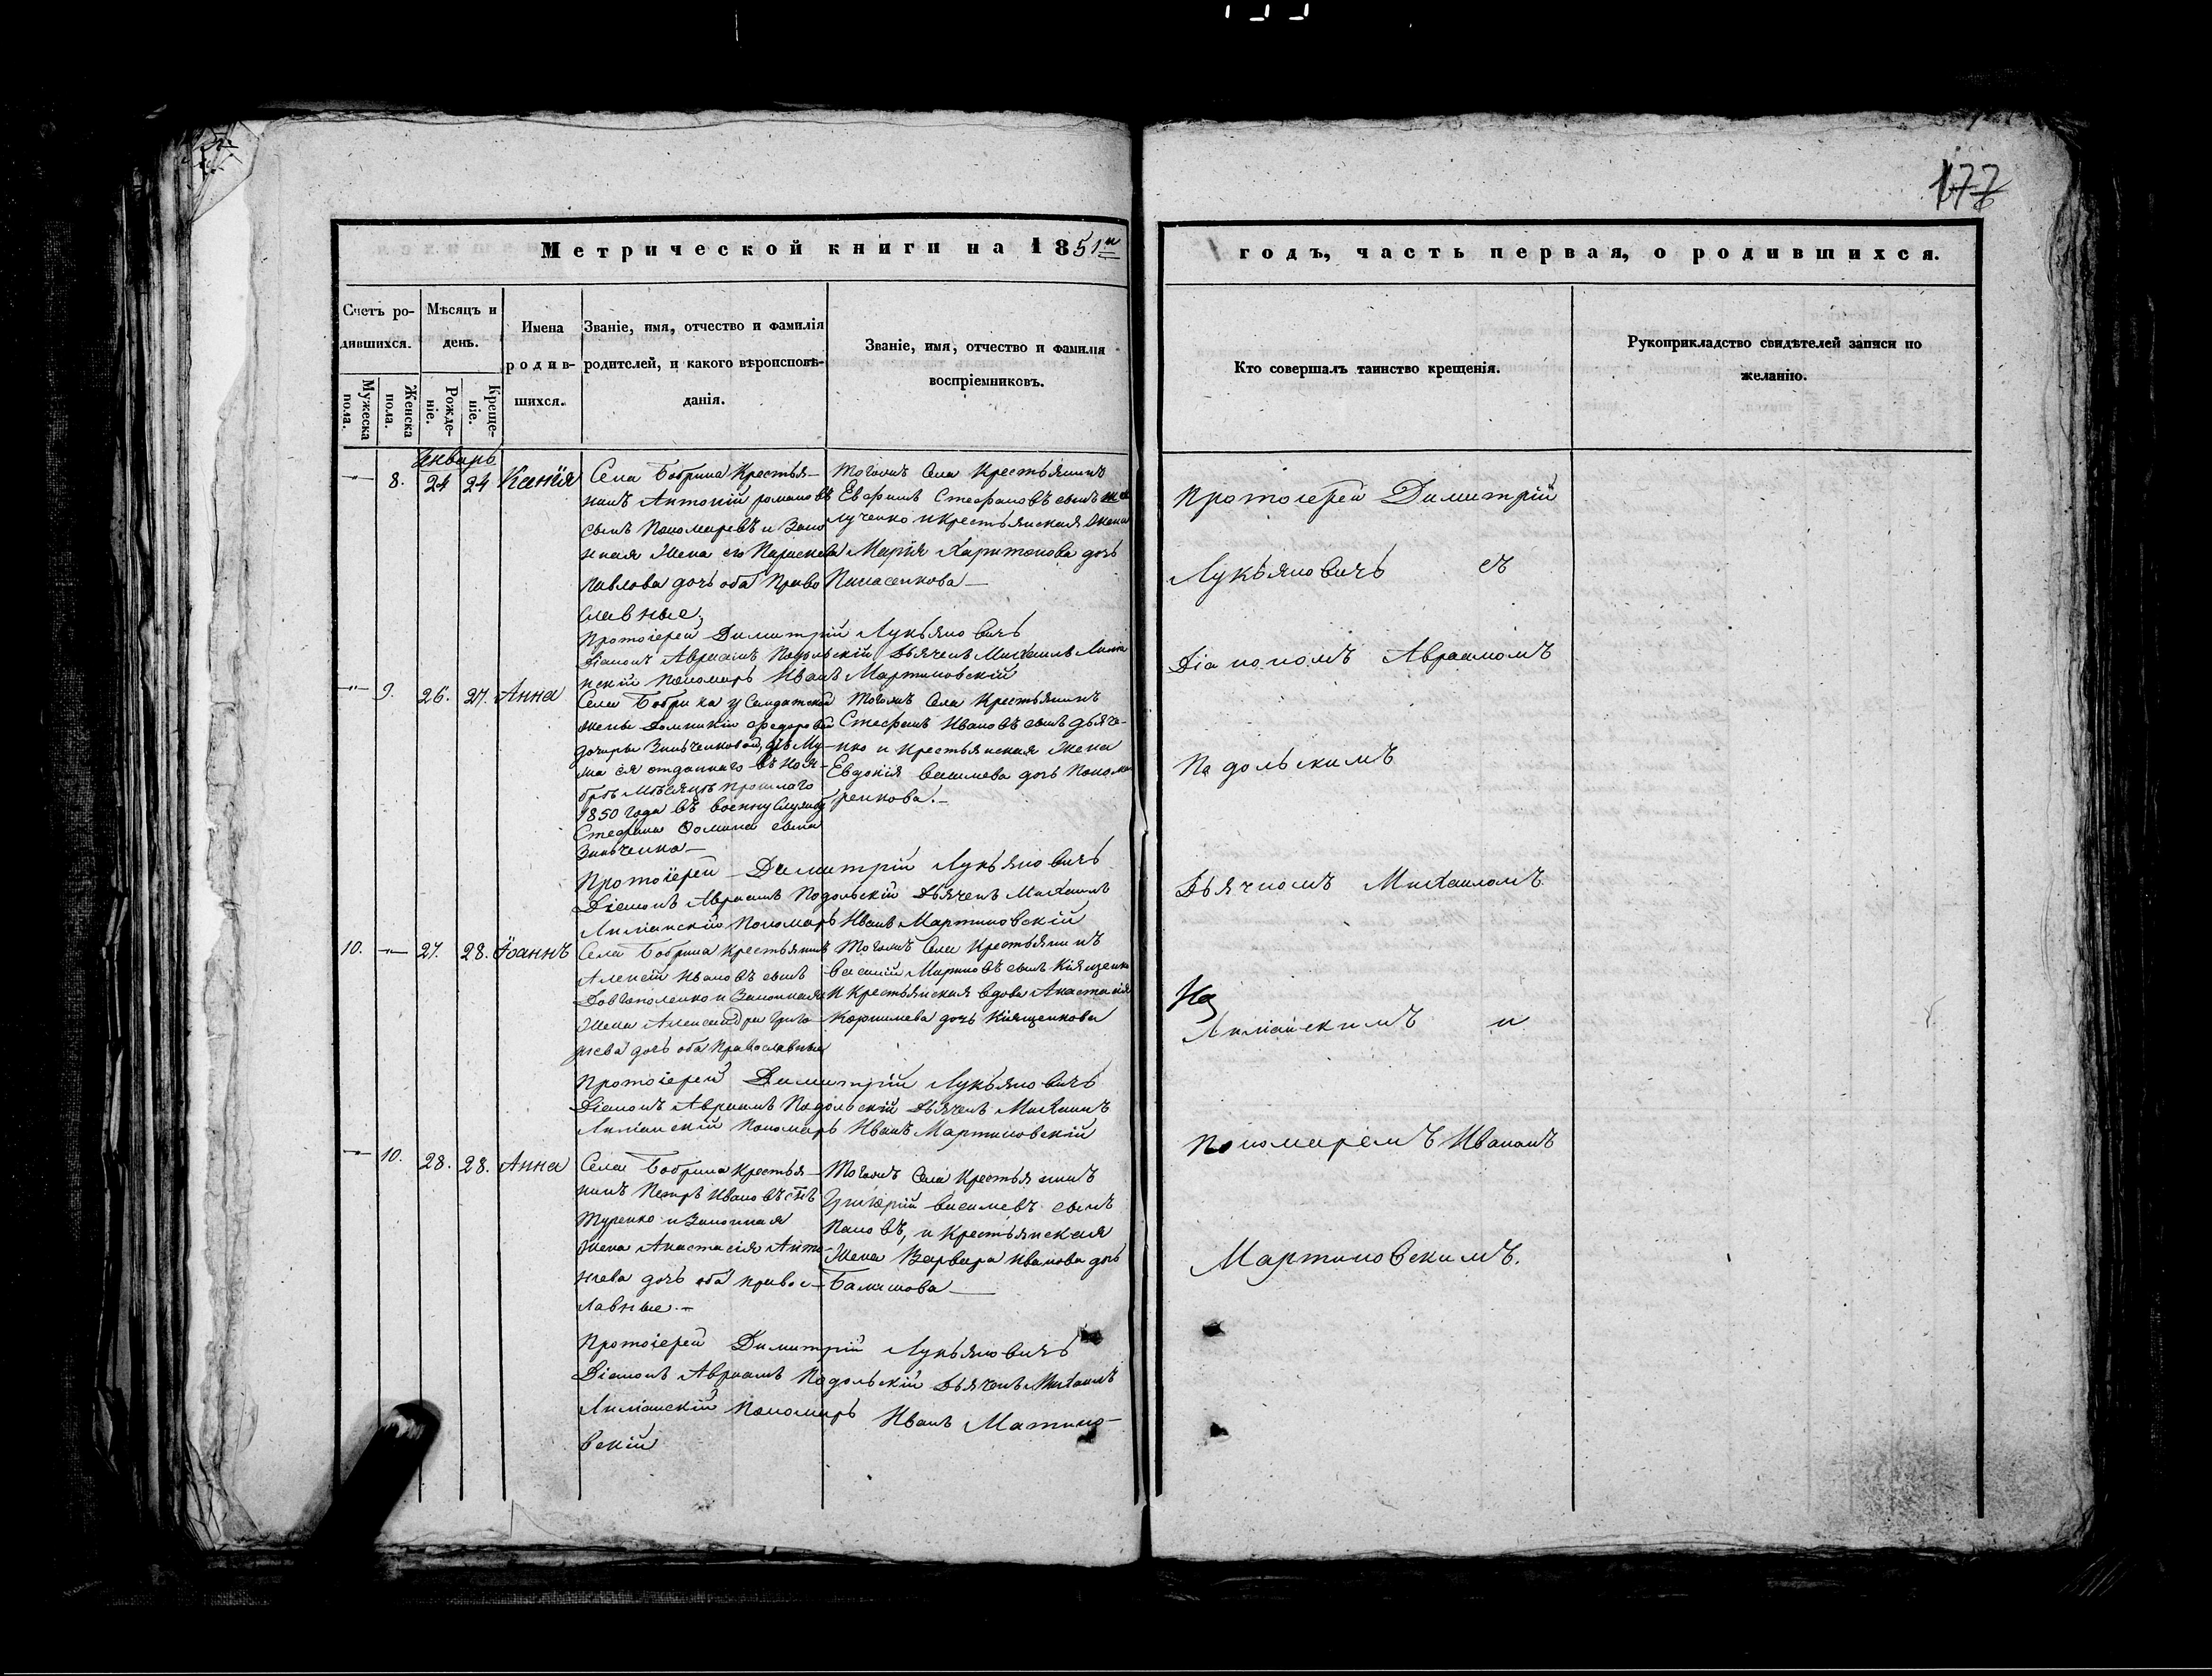 177
Метрической книги на 1851й
годъ, часть первая, о родившихся.
Счетъ ро-
дившихся.
Мужеска
пола.
Женска
пола.
Мѣсяцъ и
день.
Рожде-
ніе.
Креще-
ніе.
Имена
родив-
шихся.
Званіе, имя, отчество и фамилія
родителей, и какого вѣроисповѣ-
данія.
Званіе, имя, отчество и фамилія
воспріемниковъ.
Кто совершалъ таинство крещенія.
Рукоприкладство свидѣтелей записи по
желанію.
Январь
8. 24 24 Ксенія
Села Бобрика Крестья-
нинъ Антоній романовъ
сынъ Пономаревъ и Зако
нная Жена его Параскева
Павлова дочь оба Право
славные,
Тогожъ Села Крестьянинъ
Ефимъ Стефановъ сынъ
лученко и Крестьянская Жена
Марія Харитонова дочь
Панасенкова
Протоіерей Димитрій Лукьяновичъ
Діаконъ Авраамъ Подольскій Дьячекъ Михаилъ
нскій Пономарь Иванъ Мартиновскій
9. 26. 27. Анна
Села Бобрика у Солдатской
жены Домникіи Федоровой
дочери Зинченковой, отъ Му-
жа ея отданнаго въ Ноя-
брѣ Мѣсяцѣ прошлаго
1850 года въ военну Службу
Стефана Фомина сына
Зинченка
Тогожъ Села Крестьянинъ
Стефанъ Ивановъ сынъ Дьяче-
нко и Крестьянская Жена
Евдокія васильева дочь Понома
ренкова.
Протоіерей Димитрій Лукьяновичъ
Діаконъ Авраамъ Подольскій Дьячекъ Михаилъ
Пономарь Иванъ Мартиновскій
10. 27. 28. Іоаннъ
Села Бобрика Крестьянинъ
Алексій Ивановъ сынъ
Довгополенко и Законная
Жена Александра Григо-
рьева дочь оба Православные
Тогожъ Села Крестьянинъ
василій Мариновъ сынъ Кіященко
и Крестьянская вдова Анастасія
Корнилева дочь Кіященкова
Протоіерей Димитрій Лукьяновичъ
Діаконъ Авраамъ Подольскій Дьячекъ Михаилъ
Пономарь Иванъ Мартиновскій
10. 28. 28. Анна
Села Бобрика Крестья-
нинъ Петръ Ивановъ снъ
Туренко и Законная
Жена Анастасія Анто-
ніева дочь оба правос-
лавные.
Тогожъ Села Крестьянинъ
Григорій васильевъ сынъ
Пановъ, и Крестьянская
Жена Варвара Иванова дочь
Протоіерей Димитрій Лукьяновичъ
Діаконъ Авраамъ Подольскій Дьячекъ Михаилъ
Пономарь Иванъ Матино-
вскій
Протоіерей Димитрій
Лукьяновичъ съ
Діакономъ Авраамомъ
Подольскимъ
Дьячкомъ Михаиломъ
и
Пономаремъ Иваномъ
Мартиновскимъ.